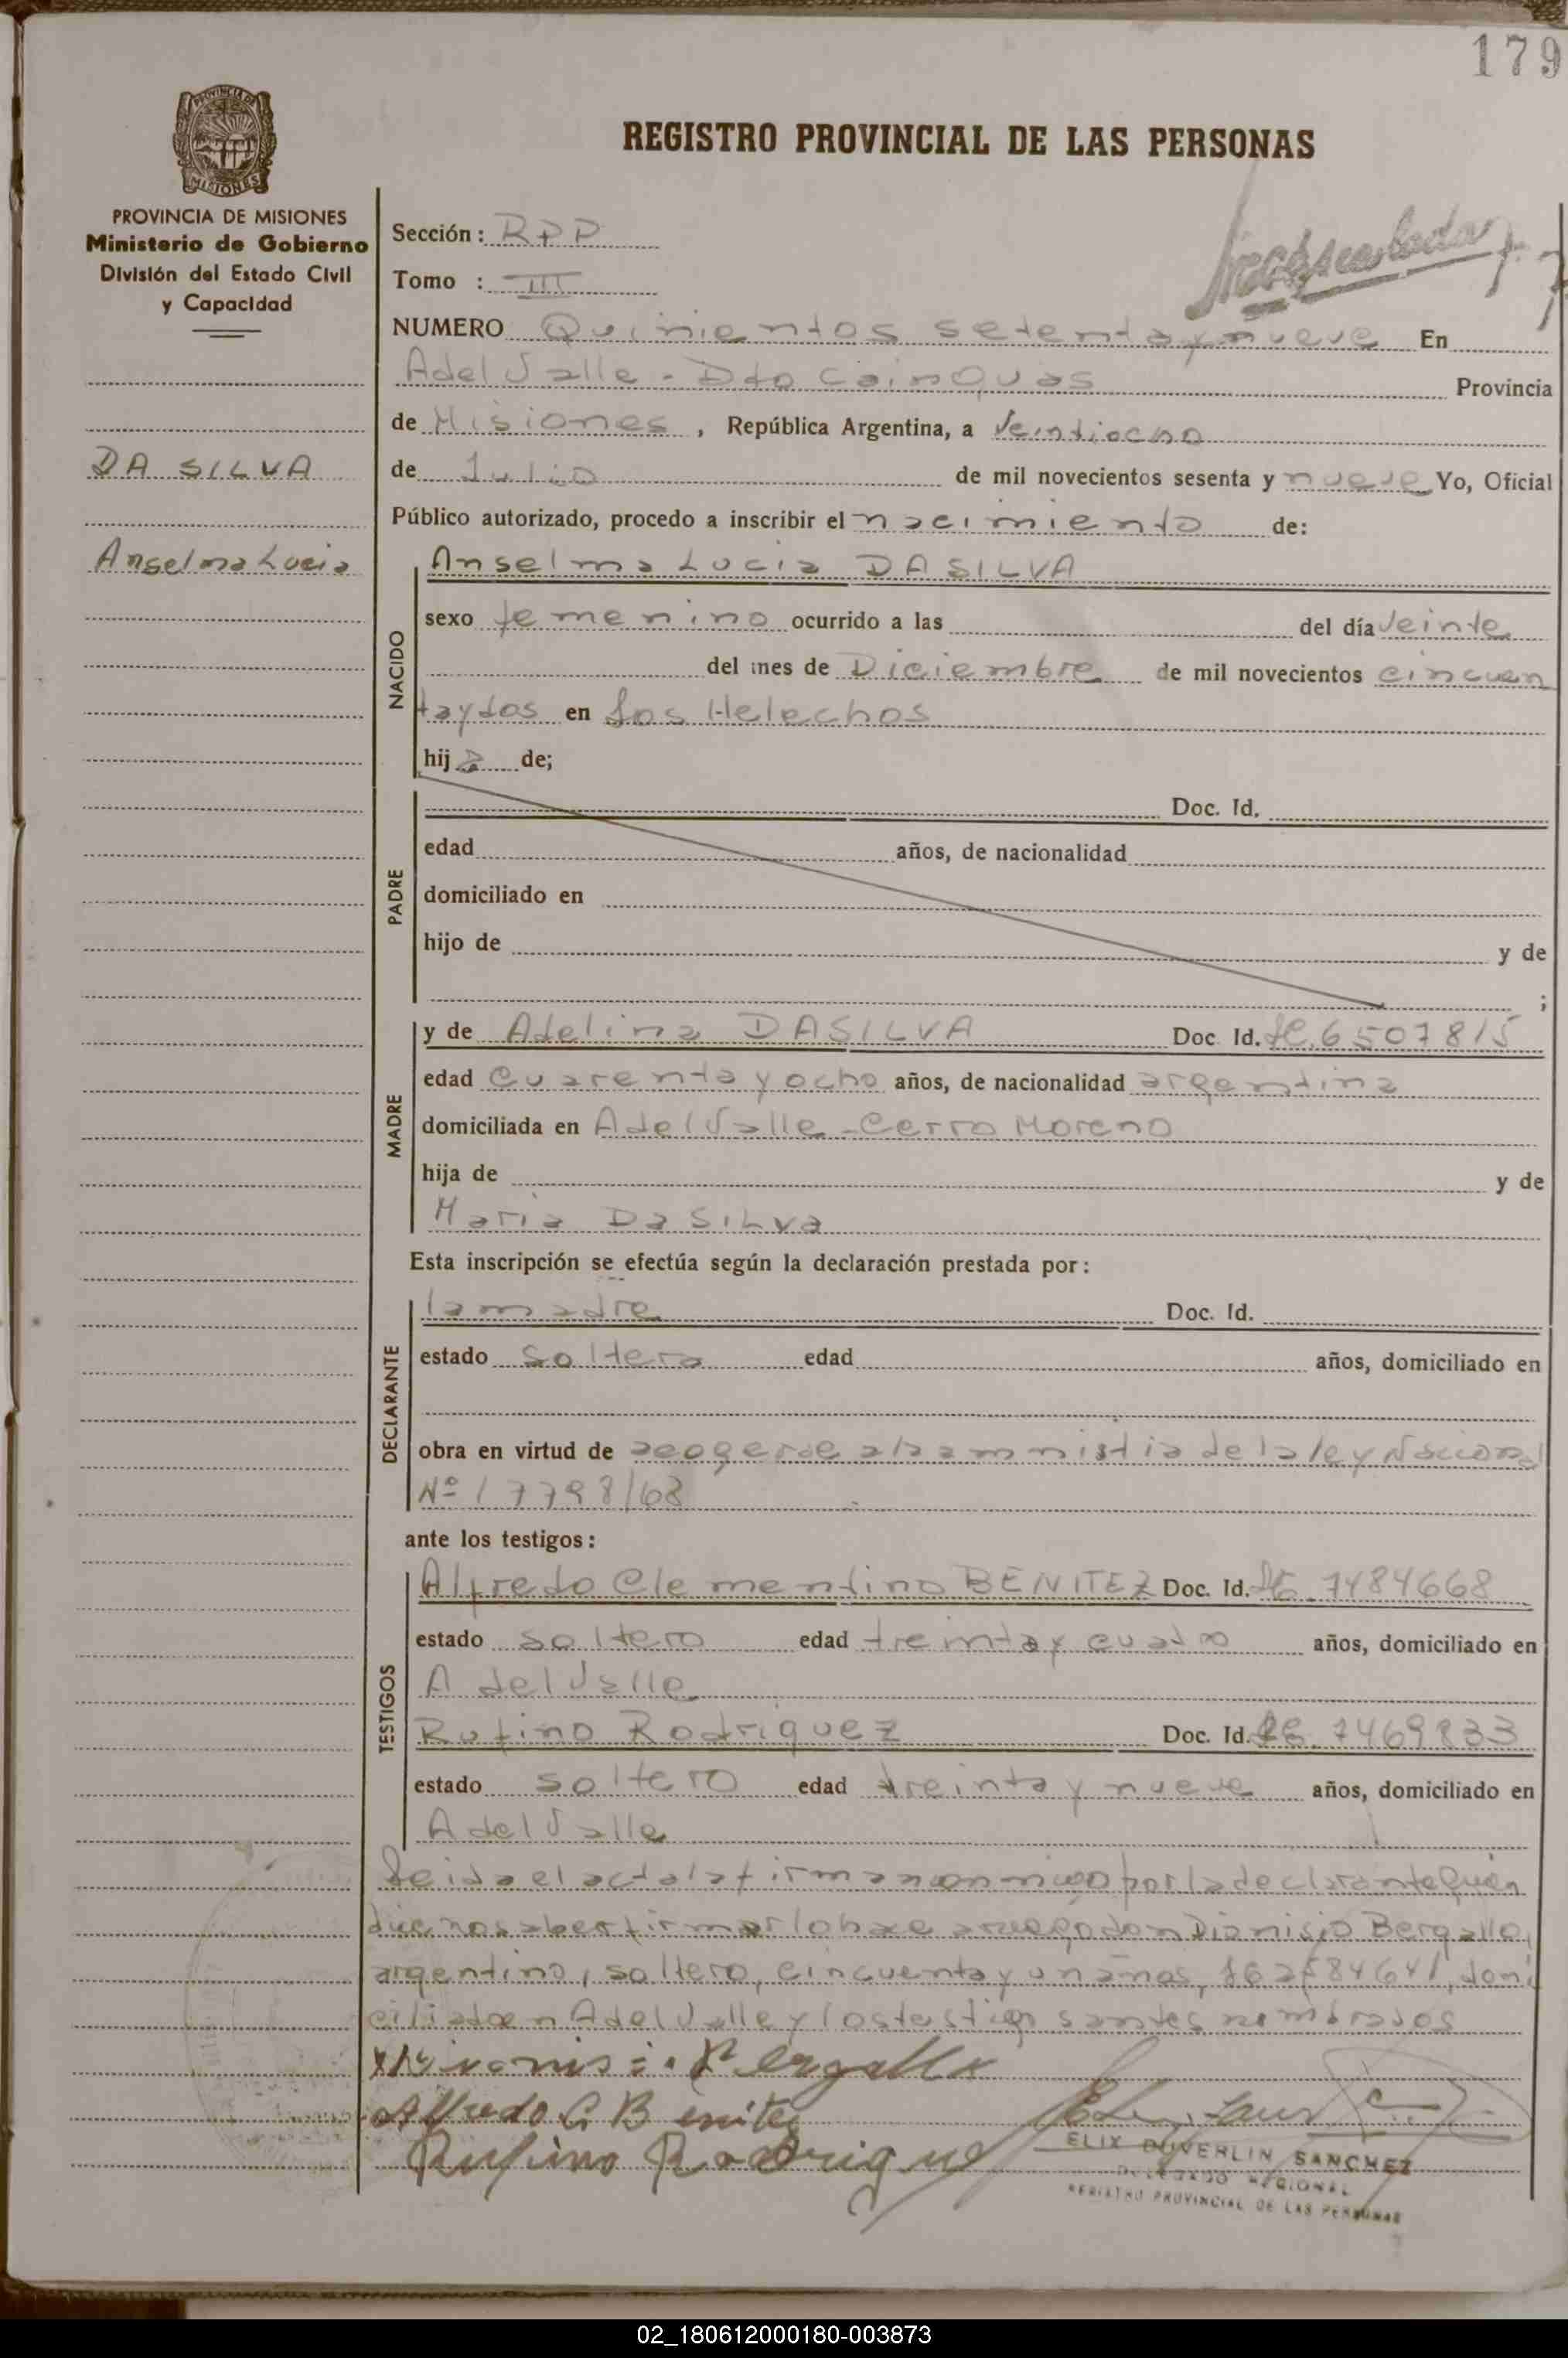 179
PROVINCIA DE
MISIONES
REGISTRO PROVINCIAL DE LAS PERSONAS
PROVINCIA DE MISIONES
Ministerio de Gobierno
División del Estado Civil
y Capacidad
Sección: RPP
Tomo : III
NUMERO Quinientos setenta y nueve En
A del Valle - Dto Cainguas Provincia
de Misiones, República Argentina, a Veintiocho
DA SILVA
de Julio de mil novecientos sesenta y nueve Yo, Oficial
Público autorizado, procedo a inscribir el nacimiento de:
Anselma Lucia
Anselma Lucia DA SILVA
NACIDO
sexo femenino ocurrido a las del día Veinte
del mes de Diciembre de mil novecientos cincuen
taydos en Los Helechos
hija de;
PADRE
Doc. Id.
edad años, de nacionalidad
domiciliado en
hijo de y de
;
MADRE
y de Adelina DASILVA Doc. Id. LC. 6507815
edad cuarenta y ocho años, de nacionalidad argentina
domiciliada en A del Valle - Cerro Moreno
hija de y de
Maria Da SILva
Esta inscripción se efectúa según la declaración prestada por:
DECLARANTE
la madre Doc. Id.
estado soltera edad años, domiciliado en
obra en virtud de acogerse a la amnistia de la ley Nacional
Nº 17798/68
ante los testigos:
TESTIGOS
Alfredo Clementino BENITEZ Doc. Id. 7484668
estado soltero edad treinta y cuatro años, domiciliado en
A del Valle
Rufino Rodriguez Doc. Id. 7469833
estado soltero edad treinta y nueve años, domiciliado en
A del Valle
Leida el acta la firma conmigo por la declarante quien
dice no saber firmar lo hace a ruego don Dionisio Bergallo,
argentino, soltero, cincuenta y un años, domi
ciliado en A del Valle y los testigos antes nombrados
Bergallo
Alfredo C. Benitez
Rufino Rodriguez
ELIX DUVERLIN SANCHEZ
DELEGADO REGIONAL
REGISTRO PROVINCIAL DE LAS PERSONAS
02_180612000180-003873